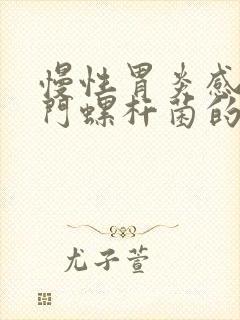 慢性胃炎感
门螺杆菌的
尤子萱